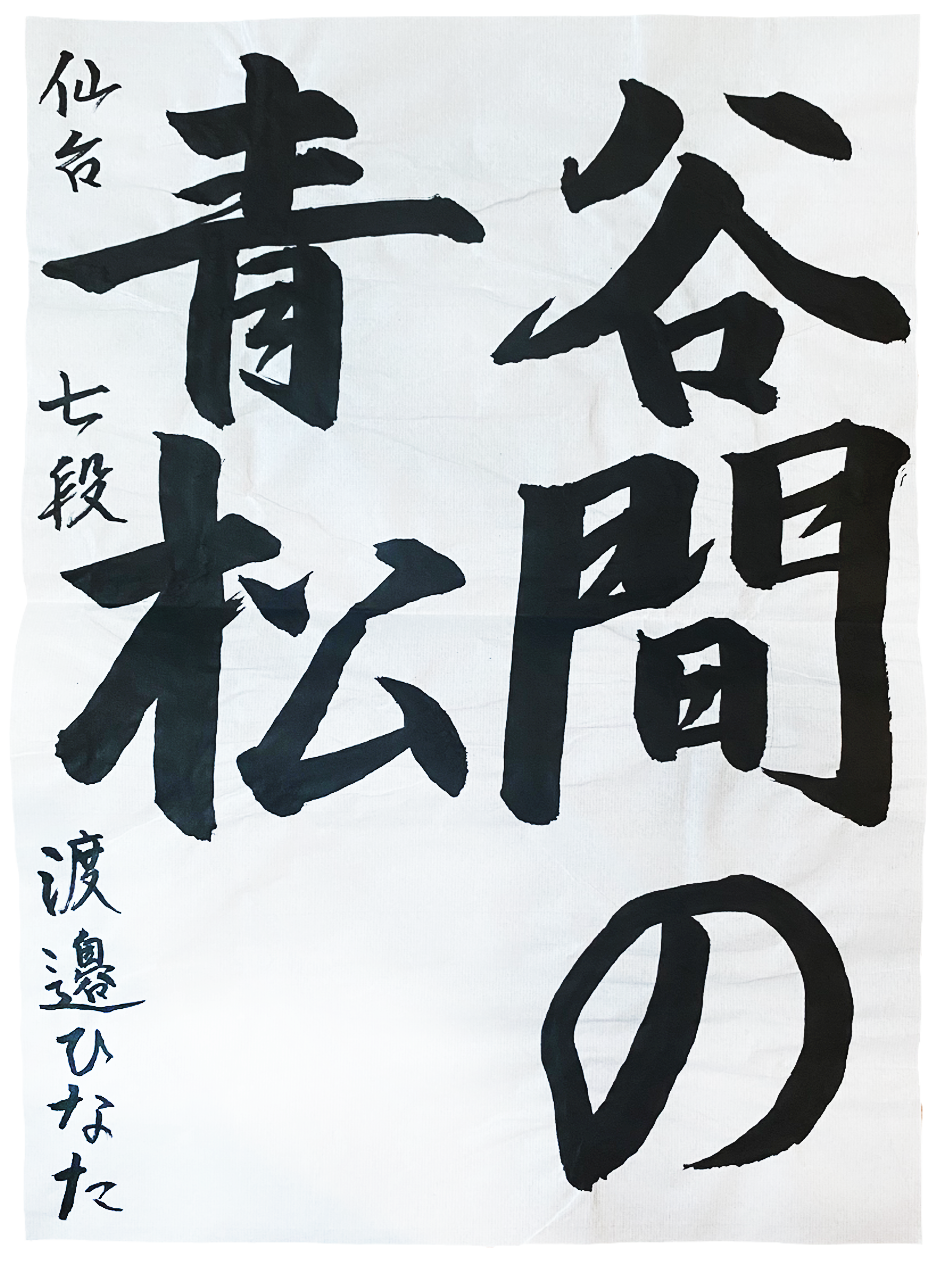 谷間の
青松
仙台 七段 渡邉ひなた